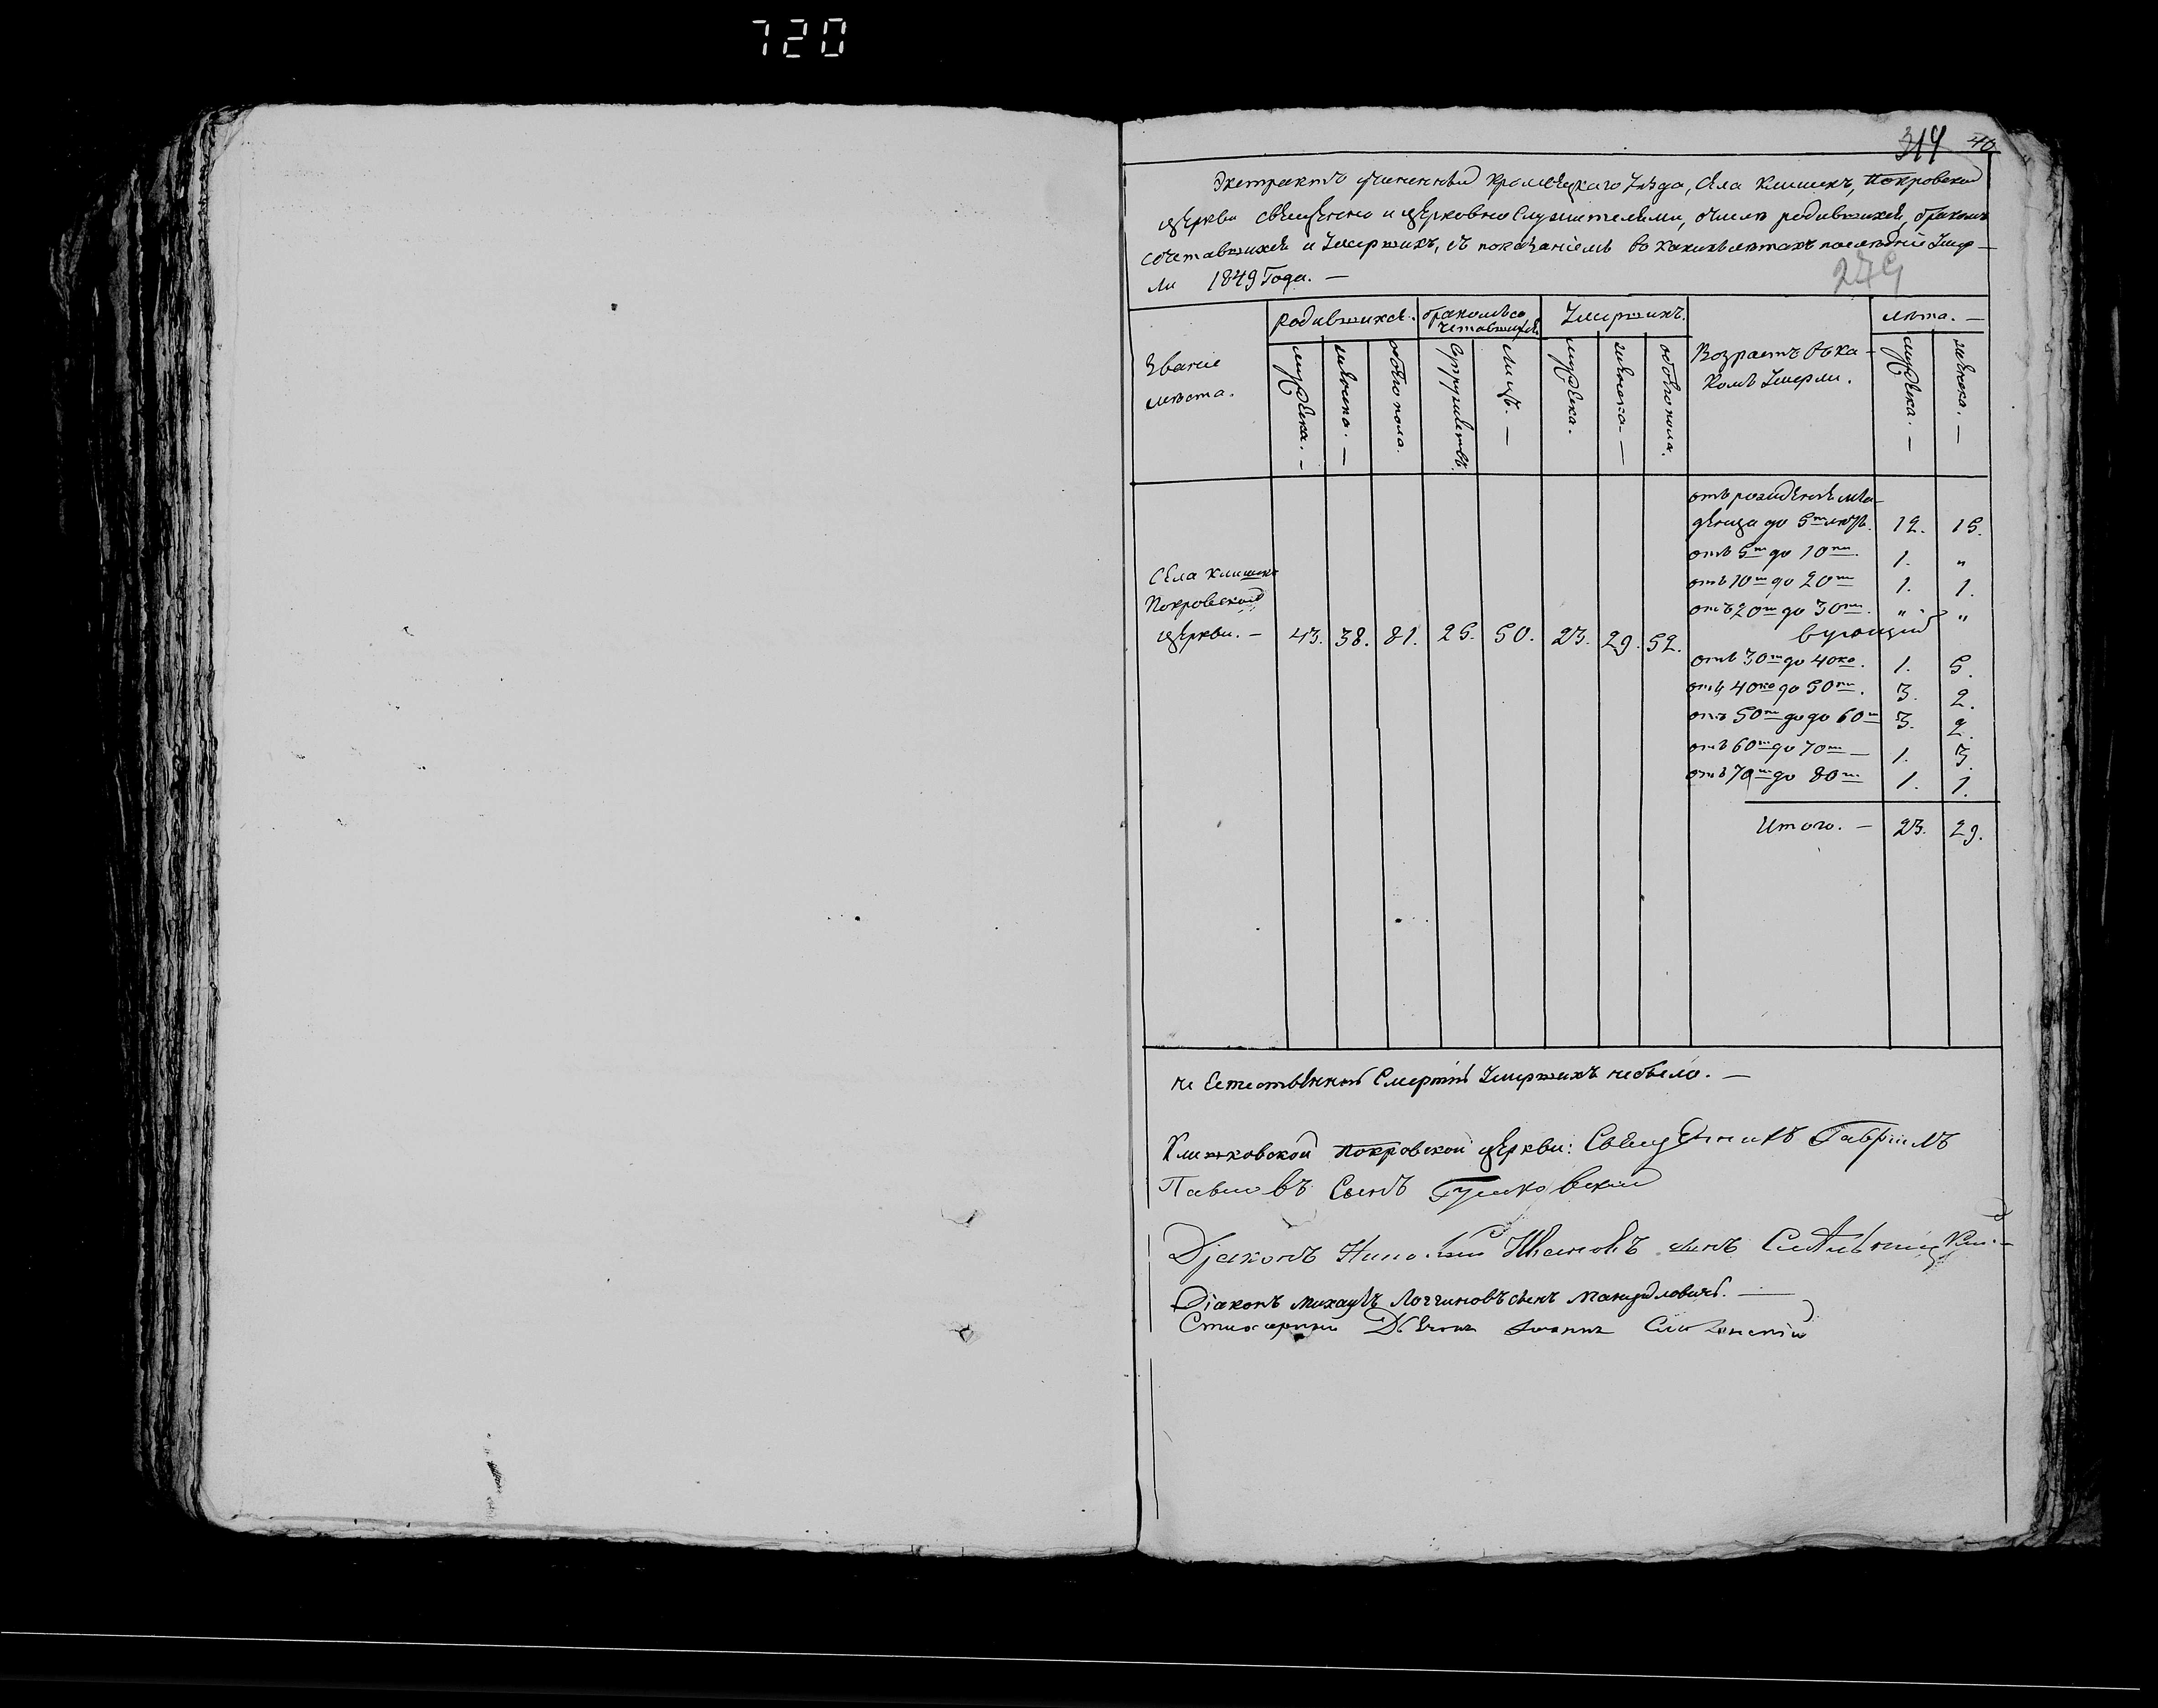 720
314 40
Экстрактъ учиненный Кролевецкаго Уѣзда, Села Клишекъ, Покровской
церкви священно и церковно Служителями, о числѣ родившихся, бракомъ
сочетавшихся и Умершихъ, съ показаніемъ въ какихъ лѣтахъ послѣдніе Умер-
ли 1849 Года. —
279
Званіе мѣста.
Родившихся.
бракомъ сочетавшихся
Умершихъ.
Возрастъ въ ка-
комъ Умерли.
лѣта. —
мужеска. —
женска. —
обоего пола.
Супружествъ.
Лицъ. —
мужеска.
женска. —
обоего пола.
мужеска. —
женска. —
Села Клишекъ
Покровской
церкви. — 43. 38. 81. 25. 50. 23. 29. 52.
отъ рожденія мла-
денца до 5ти лѣтъ. 12. 15.
отъ 5ти до 10ти. 1. "
отъ 10ти до 20ти 1. 1.
отъ 20ти до 30ти. " "
отъ 30ти до 40ка. 1. 5.
отъ 40ка до 50ти. 3. 2.
отъ 50ти до до 60ти 3. 2.
отъ 60ти до 70ти — 1. 3.
отъ 70ти до 80ти 1. 1.
Итого. — 23. 29.
не Естественной Смертій Умершихъ небыло. —
Клишковской Покровской церкви: Священникъ Гавріилъ
Павловъ Сынъ
Діаконъ Ивановъ сынъ
Діаконъ Михаилъ Логгиновъ сынъ
Стихарный Іоаннъ